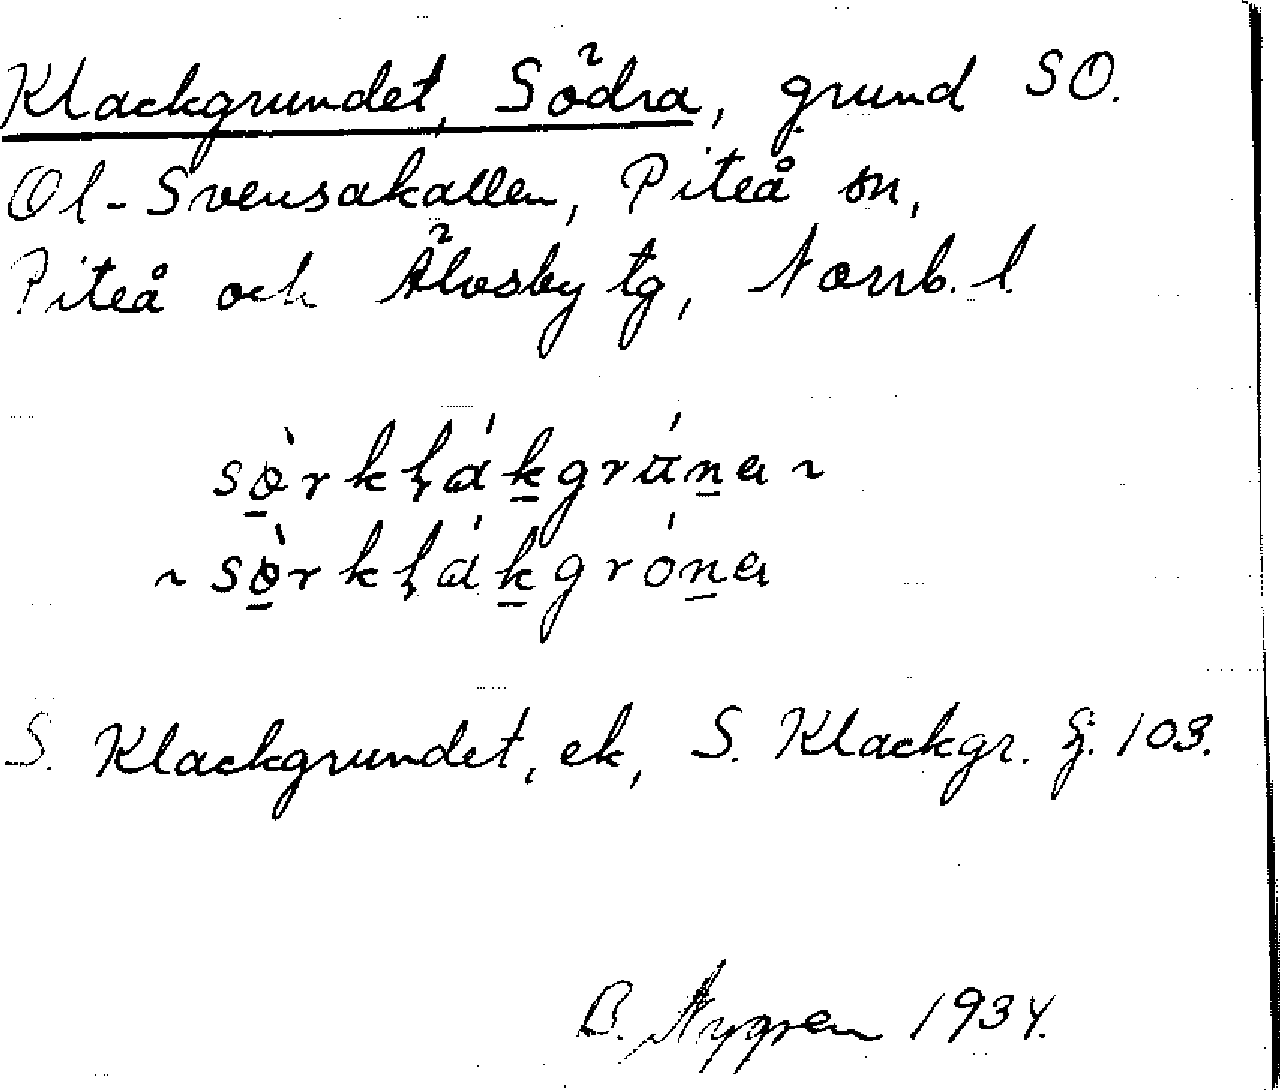 Klackgrundet, Södra, grund SO.
Ol-Svensakallen, Piteå sn,
Piteå och Älvsby tg, Norrb. l.
sö̀rkḷákgrúna ~
~ sö̀rkḷákgróna
S. Klackgrundet, ek, S. Klackgr. Gj. 103.
B. Nygren 1934.